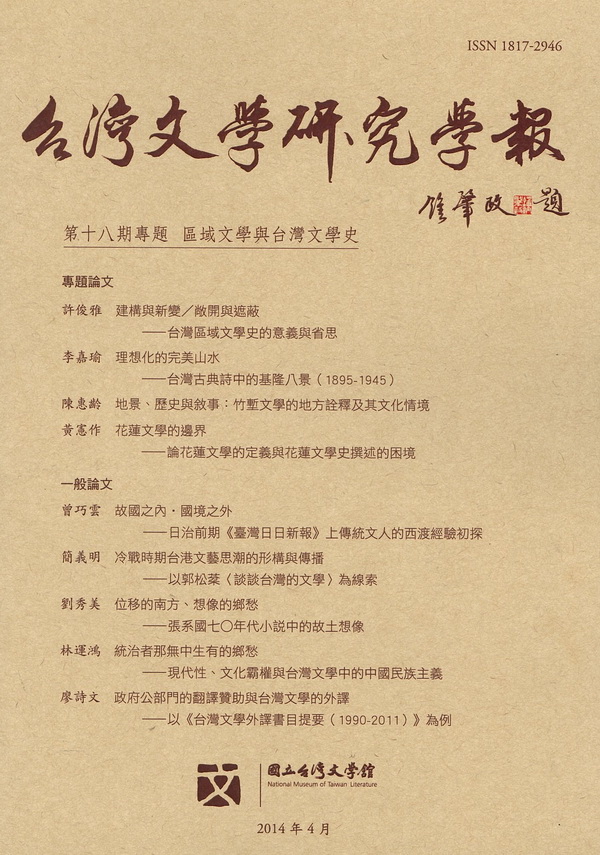 ISSN 1817-2946
台灣文學研究學報
鍾肇政 題
第十八期專題 區域文學與台灣文學史
專題論文
許俊雅 建構與新變／敞開與遮蔽
──台灣區域文學史的意義與省思
李嘉瑜 理想化的完美山水
──台灣古典詩中的基隆八景（1895-1945）
陳惠齡 地景、歷史與敘事：竹塹文學的地方詮釋及其文化情境
黃憲作 花蓮文學的邊界
──論花蓮文學的定義與花蓮文學史撰述的困境
一般論文
曾巧雲 故國之內・國境之外
──日治前期《臺灣日日新報》上傳統文人的西渡經驗初探
簡義明 冷戰時期台港文藝思潮的形構與傳播
──以郭松棻〈談談台灣的文學〉為線索
劉秀美 位移的南方、想像的鄉愁
──張系國七〇年代小說中的故土想像
林運鴻 統治者那無中生有的鄉愁
──現代性、文化霸權與台灣文學中的中國民族主義
廖詩文 政府公部門的翻譯贊助與台灣文學的外譯
──以《台灣文學外譯書目提要（1990-2011）》為例
文
國立台灣文學館
National Museum of Taiwan Literature
2014 年 4 月